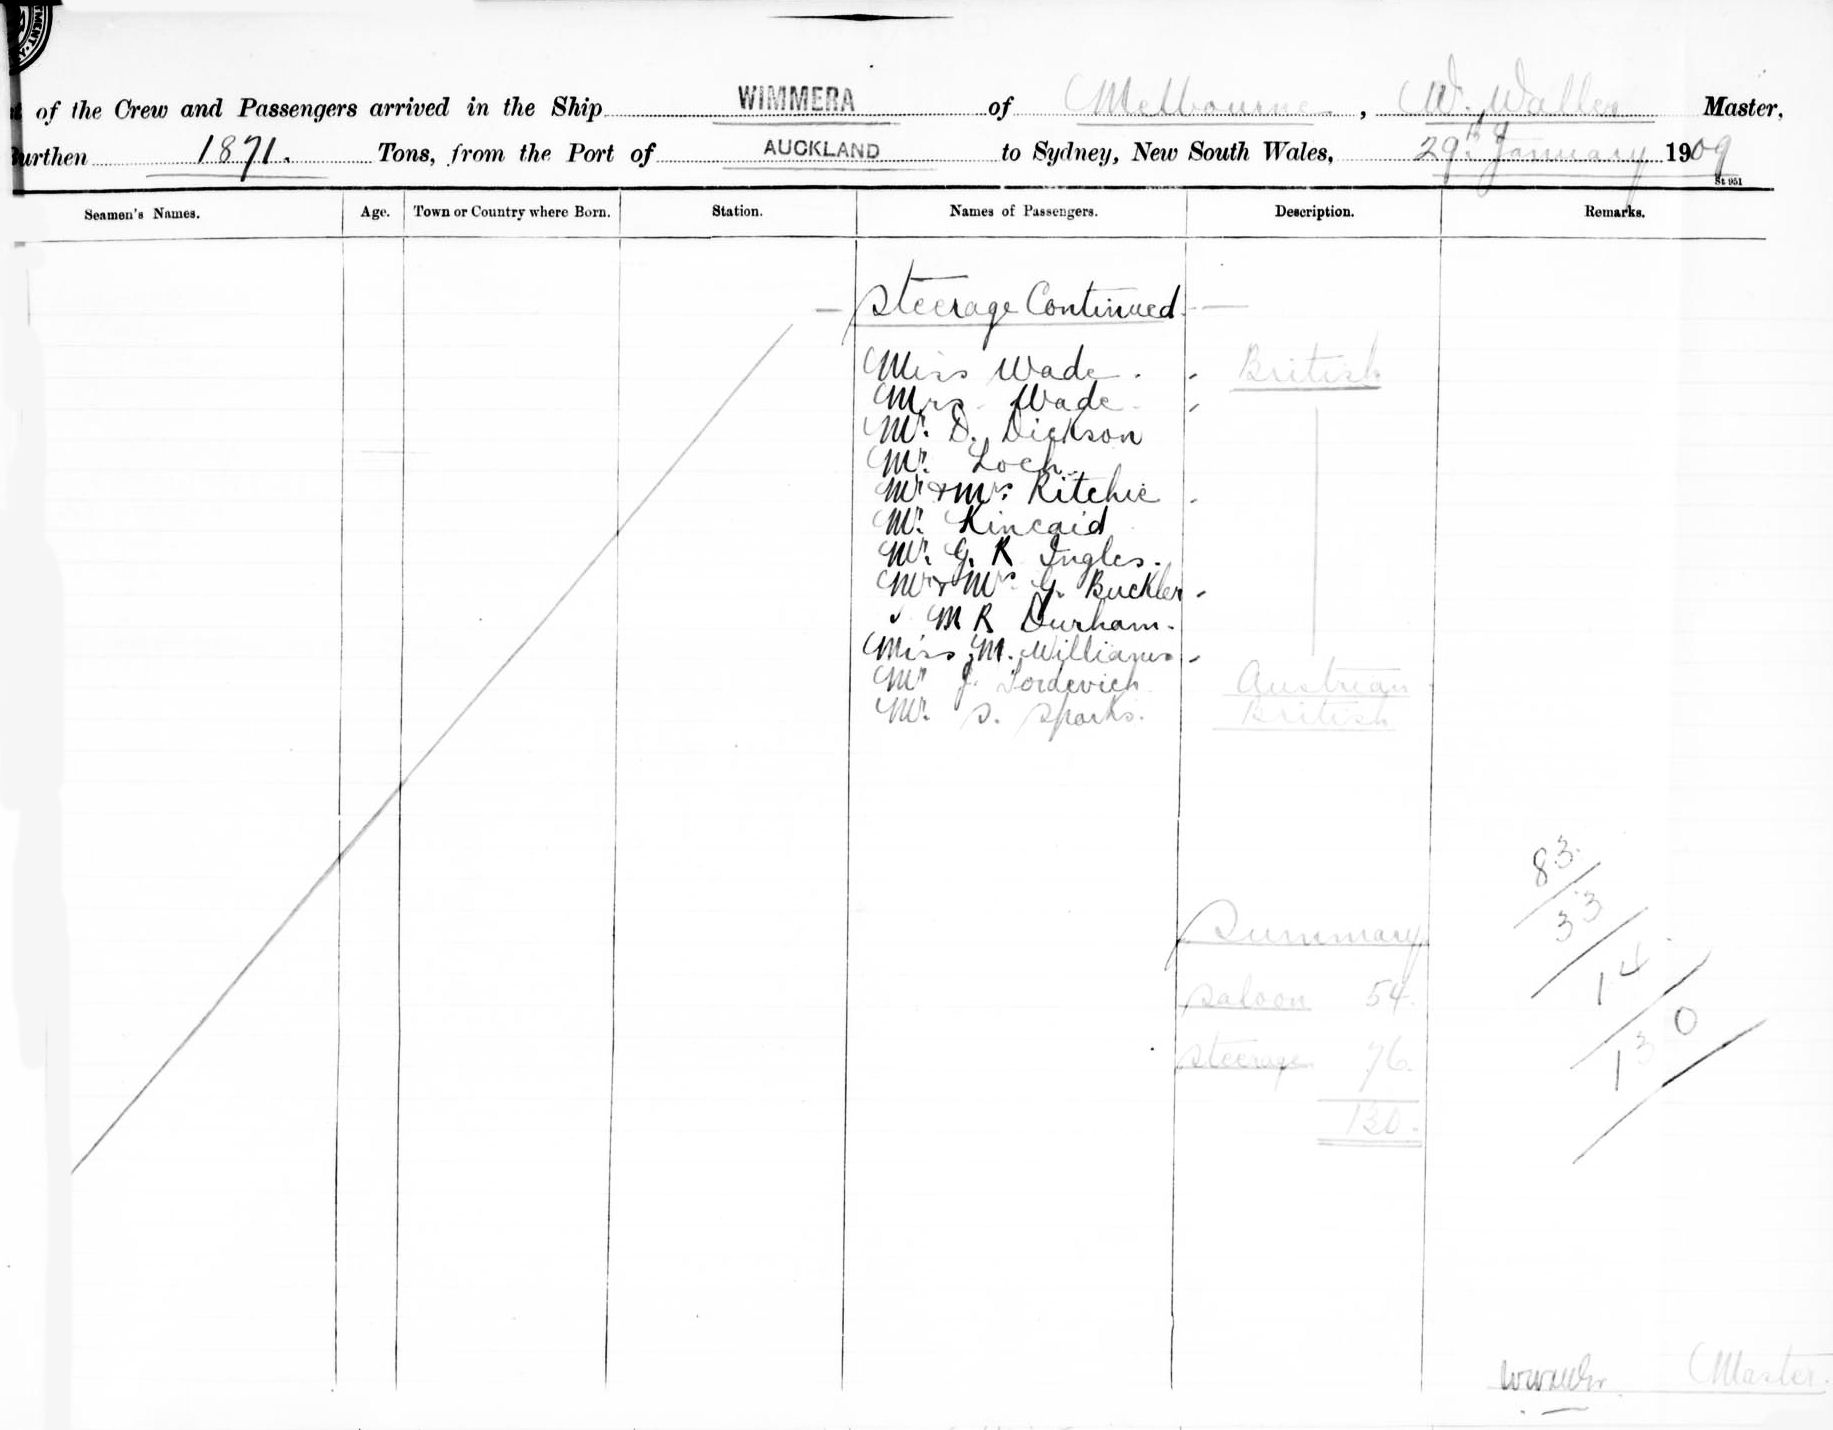 of the Crew and Passengers arrived in the Ship WIMMERA of Melbourne, W. Waller Master,
Burthen 1871. Tons, from the Port of AUCKLAND to Sydney, New South Wales, 29th January 1909
St 951
Seamen's Names. Age. Town or Country where Born. Station. Names of Passengers. Description. Remarks.
— Steerage Continued —
Miss Wade. British
Mrs. Wade
Mr. D. Dickson
Mr. Loch
Mr & Mrs Ritchie
Mr. Kincaid
Mr. G. R Ingles.
Mr & Mrs G. Buckler
M R Durham.
Miss M. Williams
Mr J. Austrian
Mr. S. Sparks. British
83
33
14
130
Summary
Saloon 54.
Steerage 76.
130.
Master.